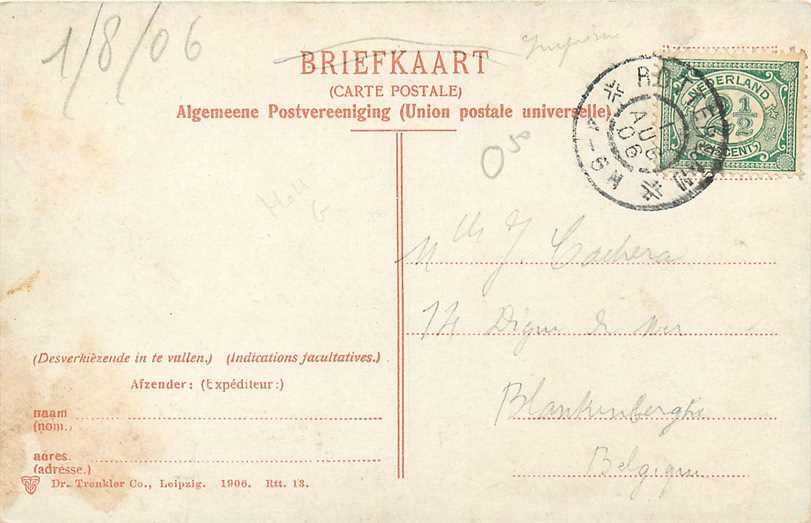 1/8/06
BRIEFKAART
(CARTE POSTALE)
Algemeene Postvereeniging (Union postale universelle).
NEDERLAND
1/2
CENT
ROTTERDAM
1
AUG
06
O50
Holl
14 Digue de mer
Blankenberghe
Belgique
(Desverkiezende in te vullen.) (Indications facultatives.)
Afzender: (Expéditeur:)
naam
(nom.)
adres.
(adresse.)
Dr. Trenkler Co., Leipzig. 1906. Rtt. 13.